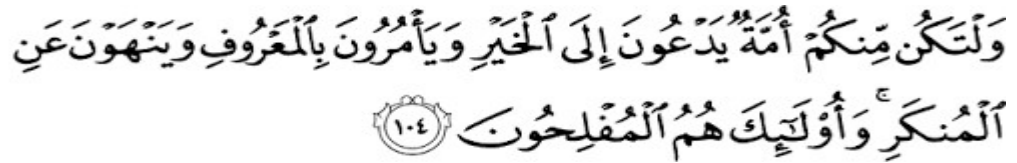 وَلْتَكُن مِّنكُمْ أُمَّةٌ يَدْعُونَ إِلَى ٱلْخَيْرِ وَيَأْمُرُونَ بِٱلْمَعْرُوفِ وَيَنْهَوْنَ عَنِ
ٱلْمُنكَرِ ۚ وَأُو۟لَـٰٓئِكَ هُمُ ٱلْمُفْلِحُونَ ١٠٤